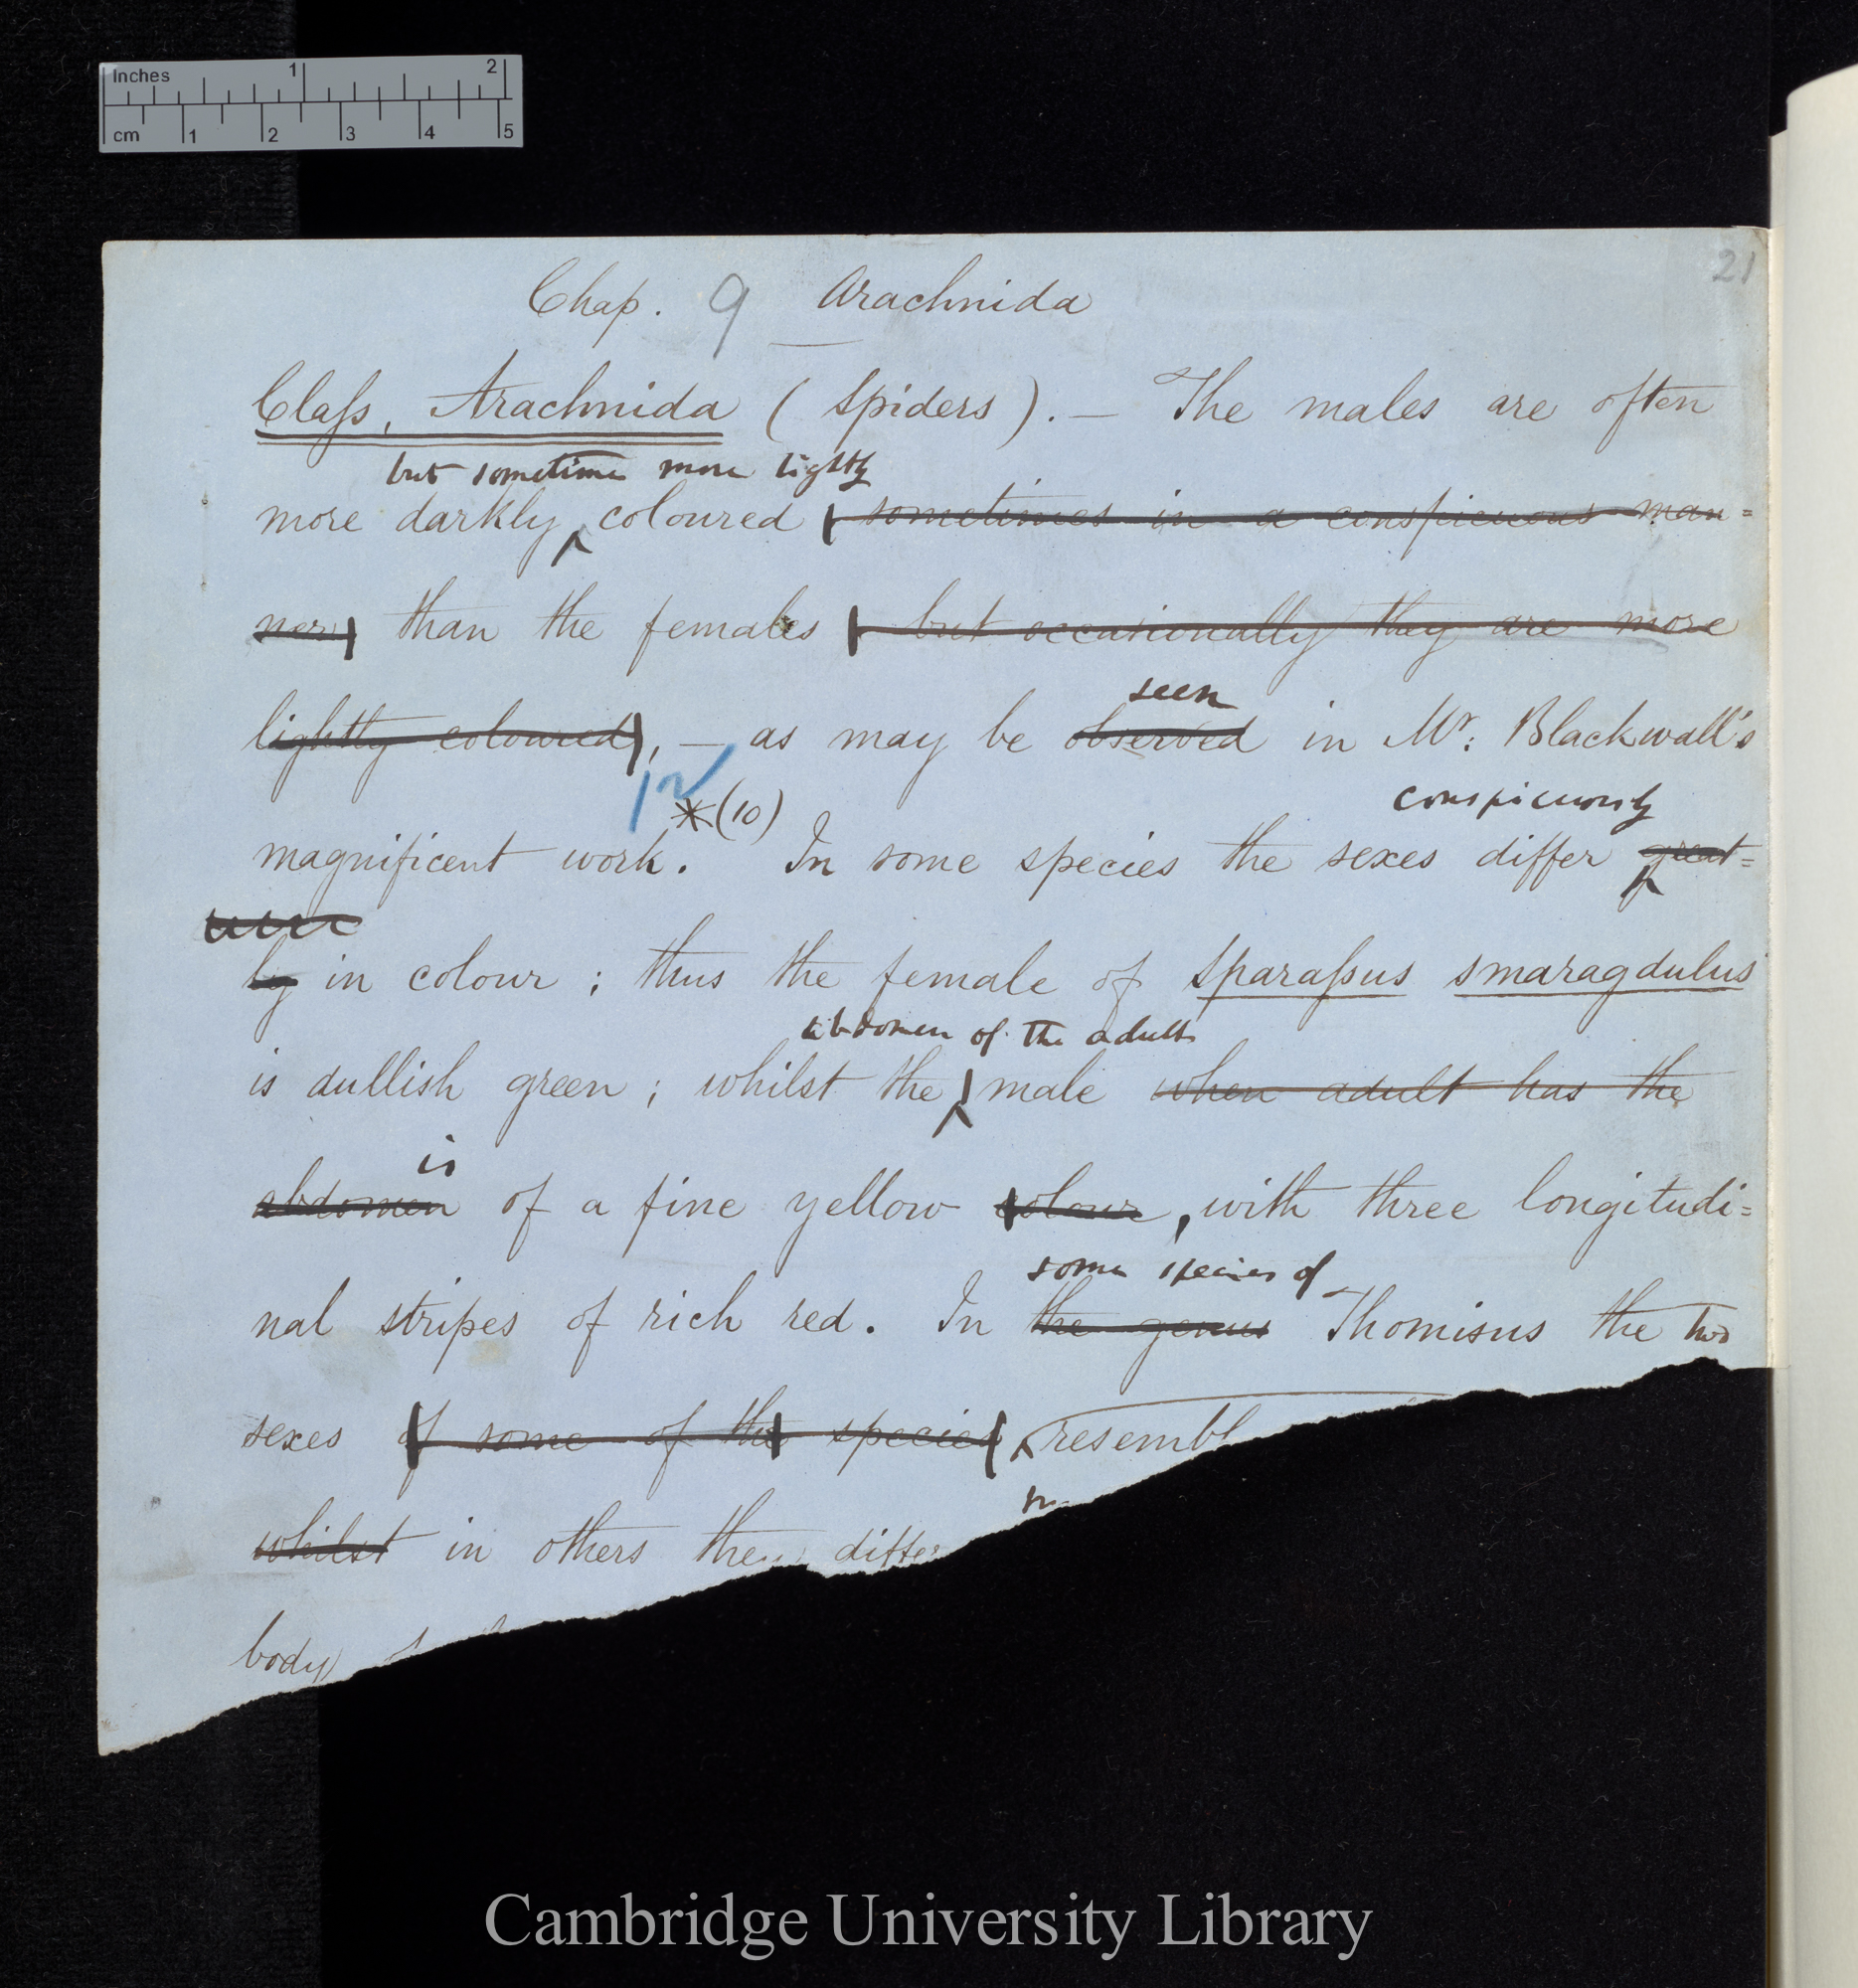 Inches 1 2
cm 1 2 3 4 5
21
Chap. 9 Arachnida
Class, Arachnida (Spiders). — The males are often
but sometimes more lightly
more darkly coloured sometimes in a conspicuous man=
ner, than the females but occasionally they are more
seen
lightly coloured, — as may be observed in Mr. Blackwall's
12
*(10)
conspicuously
magnificent work. In some species the sexes differ great=
ly in colour; thus the female of Sparassus smaragdulus
abdomen of the adult
is dullish green; whilst the male when adult has the
is
abdomen of a fine yellow colour, with three longitudi=
some species of
nal stripes of rich red. In the genus Thomisus the two
sexes of some of the species resembl
whilst in others they differ
body
Cambridge University Library